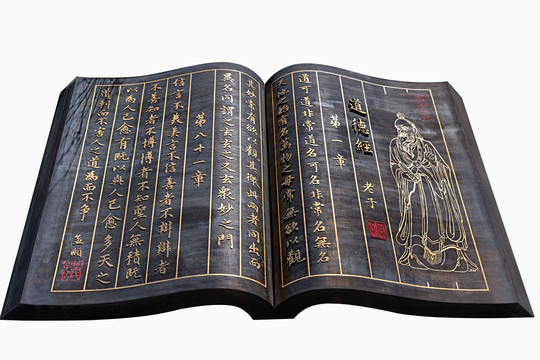 道德經
老子
第一章
道可道非常道名可名非常名無名
天地之始有名萬物之母常無欲以觀
其妙常有欲以觀其徼此兩者同出而
異名同謂之玄玄之又玄眾妙之門
第八十一章
信言不美美言不信善者不辯辯者
不善知者不博博者不知聖人無積既
以為人己愈有既以與人己愈多天之
道利而不害人之道為而不争